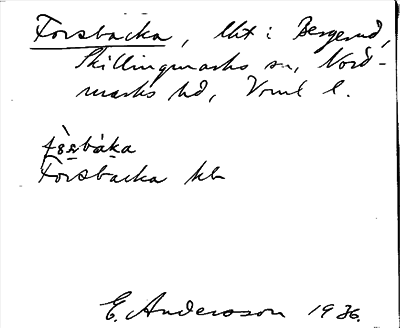 Forsbacka, lht i Bergerud,
Skillingmarks sn, Nord-
marks hd, Vrml l.
Forsbacka kb
E. Andersson 1936.